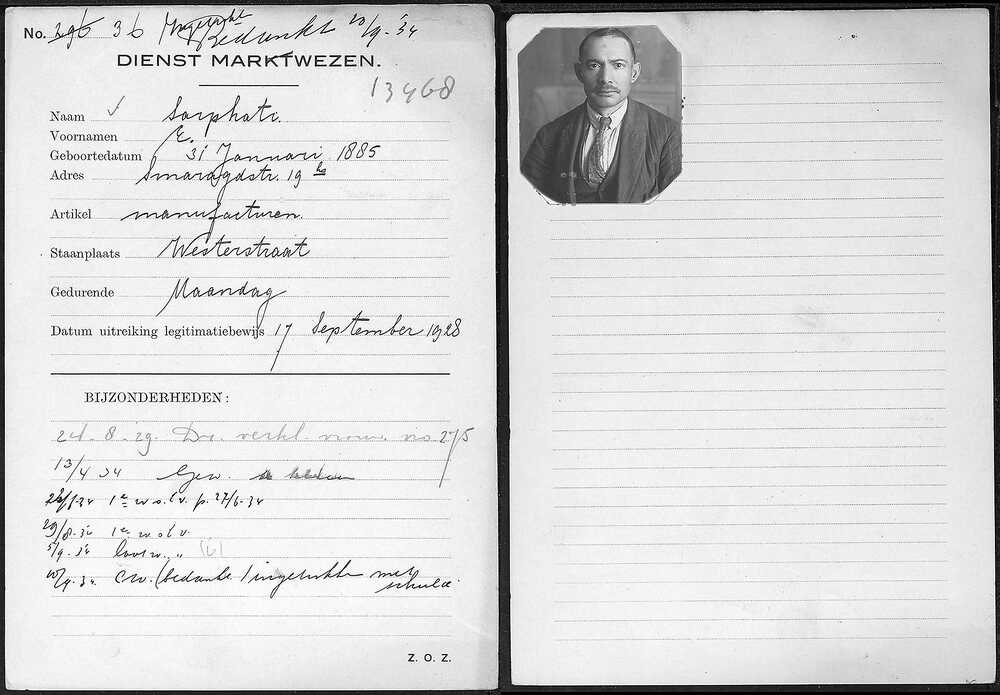 No. 296 36 Ingetrokken
Bedankt 20/9-'34
DIENST MARKTWEZEN.
13468
Naam Sarphati.
Voornamen E.
Geboortedatum 31 Januari 1885
Adres Smaragdstr. 19 hs
Artikel manufacturen.
Staanplaats Westerstraat
Gedurende Maandag
Datum uitreiking legitimatiebewijs 17 September 1928
BIJZONDERHEDEN:
24-8-29. Dr. verkl. vrouw. no. 275
13/4 34 Gew.
1e w
29/8-34 1e w
5/9-34
20/9-34. (bedankt / ingetrokken met
schuld.
Z. O. Z.